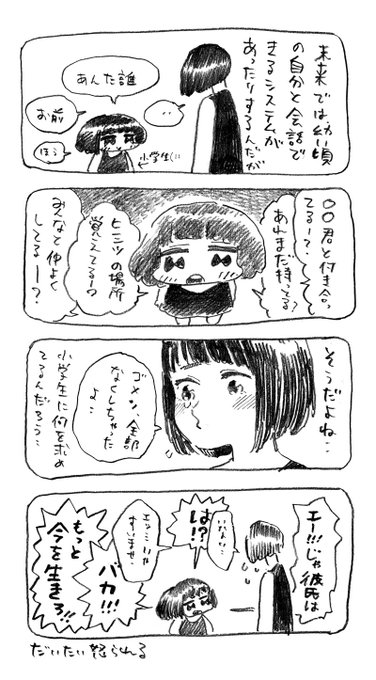 未来では幼い頃
の自分と会話で
きるシステムが
あったりするんだが
‥
あんた誰
お前
ほう
小学生(::
〇〇君と付き合っ
てる〜?
あれまだ持ってる?
ヒミツの場所
覚えてるー?
みんなと仲よく
してるー?
そうだよね‥
ゴメン、全部
なくしちゃった
よ‥
小学生に何を求め
てるんだろう‥
エー!!!じゃ彼氏は
いない‥
は!?
すいません
バカ!!!
もっと
今を生きろ!!
だいたい怒られる